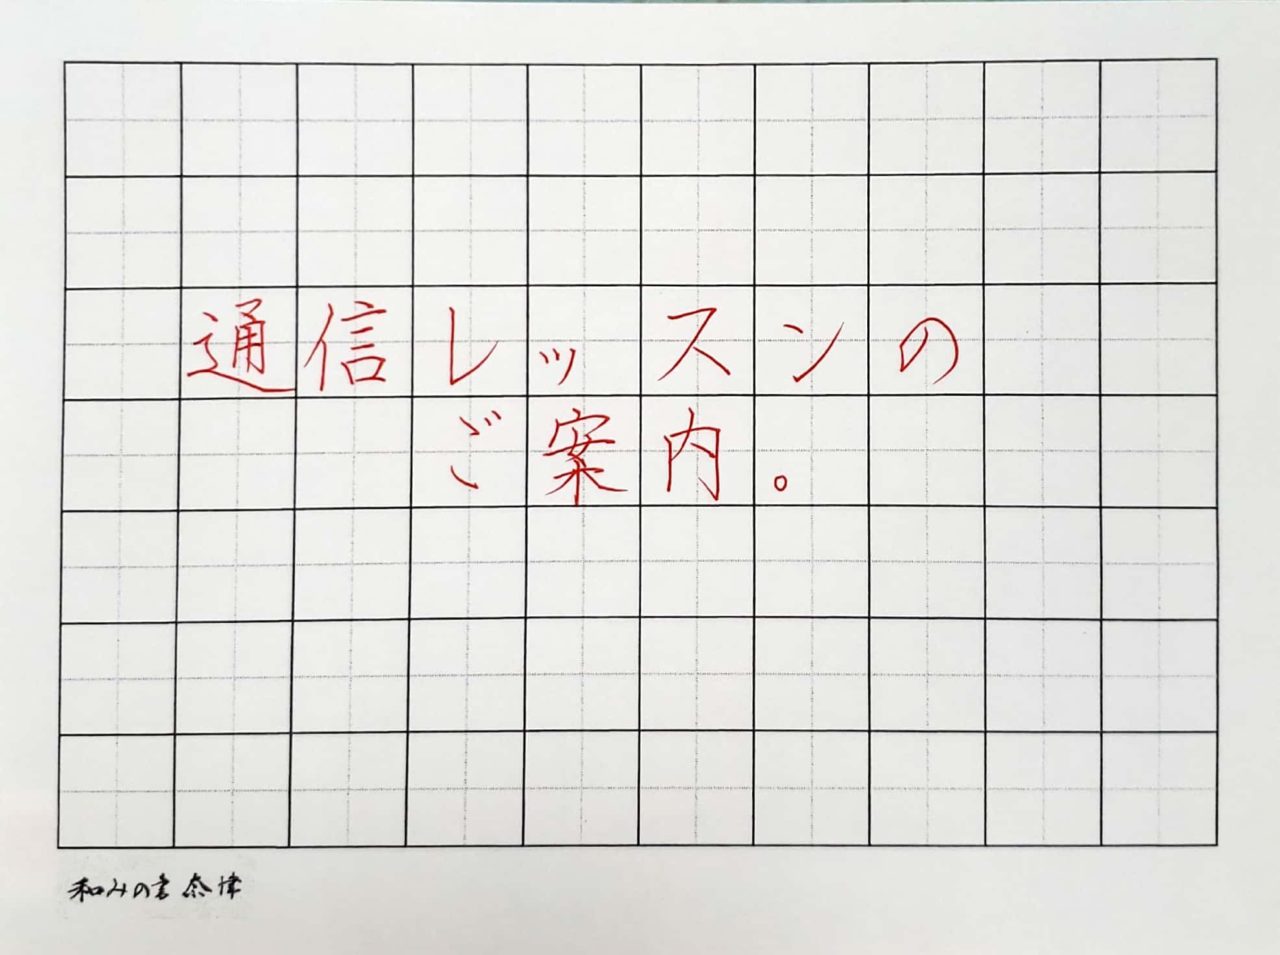 通信レッスンの
ご案内。
和みの書 奈